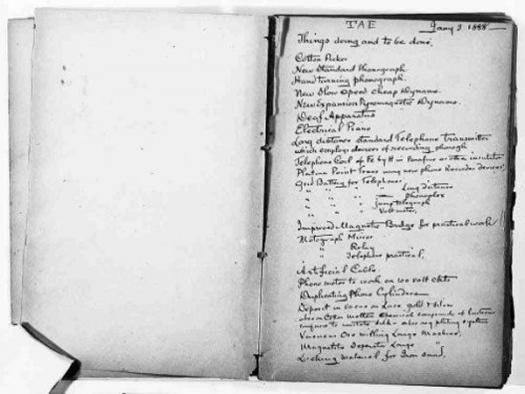 TAE Jany 3 1888
Things doing and to be done.
Cotton Picker
New Standard Phonograph
Hand turning phonograph.
New Slow Speed cheap Dynamo.
New Expansion Pyromagnetic Dynamo.
Deaf Apparatus
Electrical Piano
Long distance standard Telephone Transmitter
which employs devices of recording phonogh
Telephone Coil of Fe by tt in Parafine or other insulator
Platina Point Trans using new phono Recorder devices
Grid Battery for Telephones
" " " Long distance
" " " Phonoplex
" " " Jump telegraph
" " " Voltmeter,
Improved Magnetic Bridge for practical work
Motograph Mirror
" Relay
" Telephone practical,
Artificial Cable
Phono motor to work on 100 volt ckts
Duplicating Phono Cylinders
Deposit in vacuo on Lace, gold & silver
also on Cotton molten chemical compounds of lustrous
surfaces to imitate silk - also reg plating system
Vacuous Ore milling Large Machine,
Magnetic Separator Large "
Locking material for Iron sand.